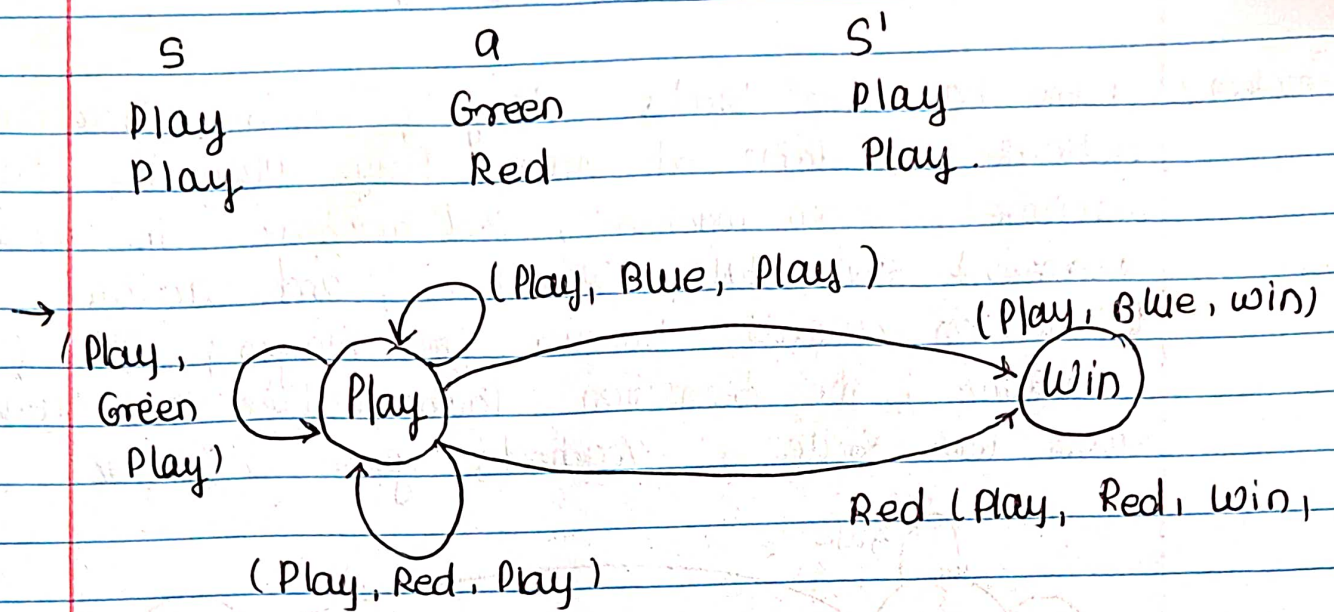 S a S'
Play Green Play
Play Red Play.
(Play, Blue, Play)
(Play, Blue, win)
(Play,
Green
Play)
Play
Win
Red (Play, Red, Win,
(Play, Red, Play)